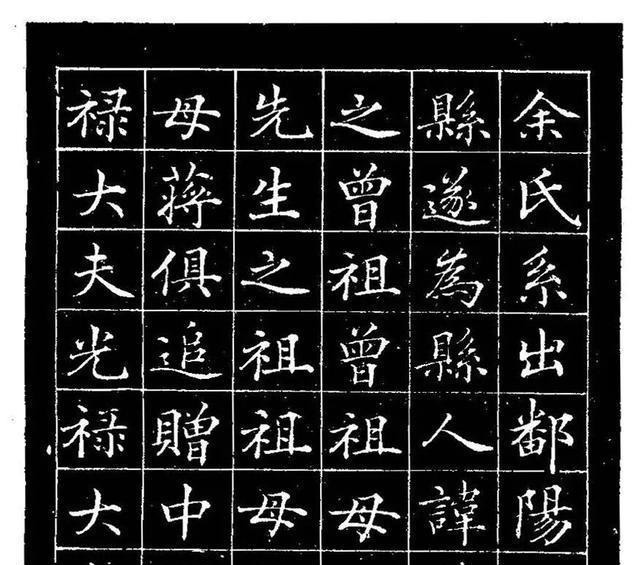 余氏系出鄱陽
縣遂為縣人諱
之曾祖曾祖母
先生之祖祖母
母蔣俱追贈中
禄大夫光禄大